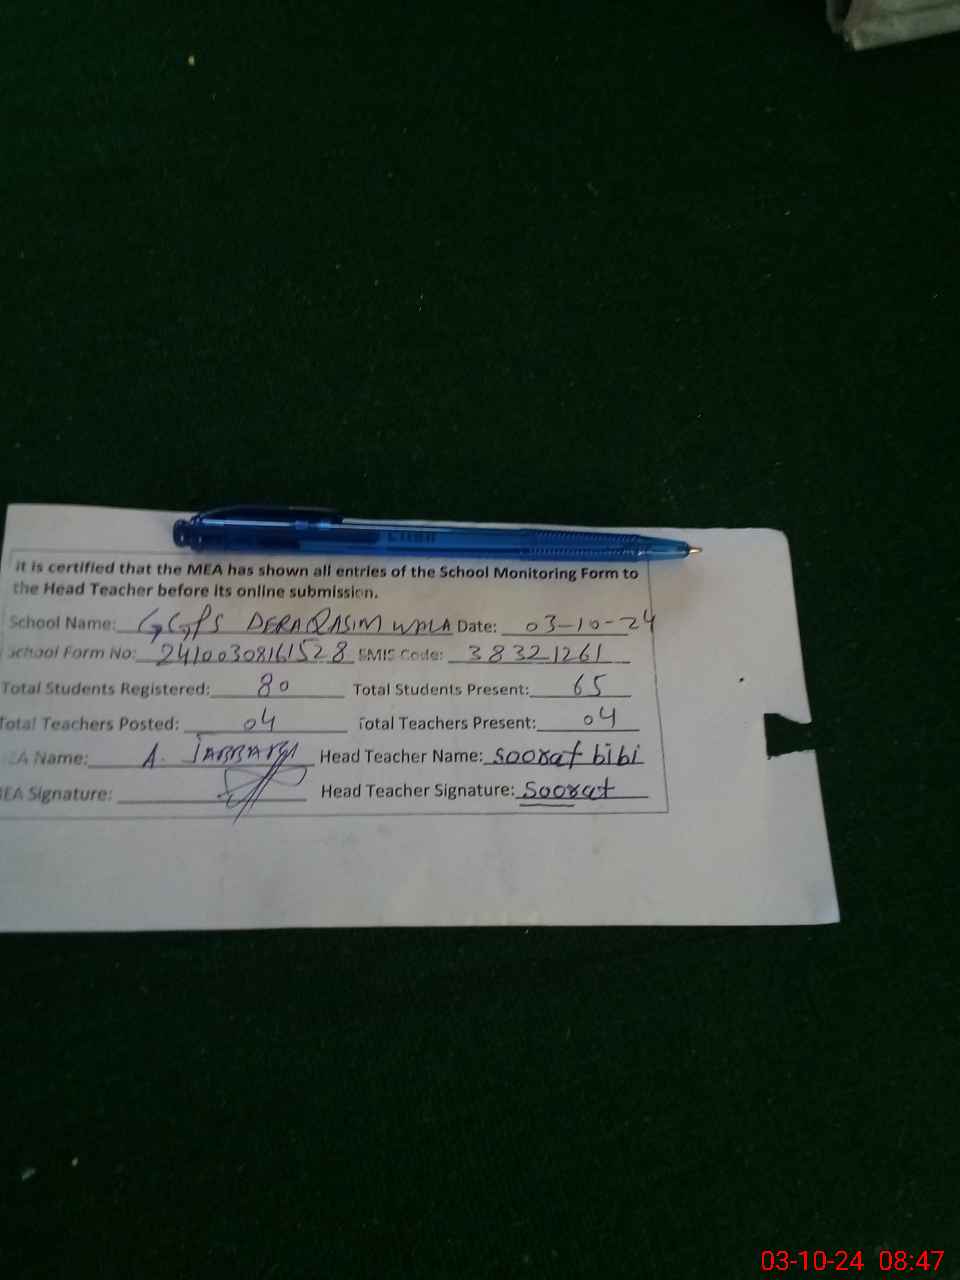 it is certified that the MEA has shown all entries of the School Monitoring Form to
the Head Teacher before its online submission.
School Name: GGPS DERA QASIM WALA Date: 03-10-24
School Form No: 24100308161528 EMIS Code: 38321261
Total Students Registered: 80 Total Students Present: 65
Total Teachers Posted: 04 Total Teachers Present: 04
EA Name: A. JABBAR Head Teacher Name: Soorat bibi
MEA Signature: Head Teacher Signature: Soorat
03-10-24 08:47